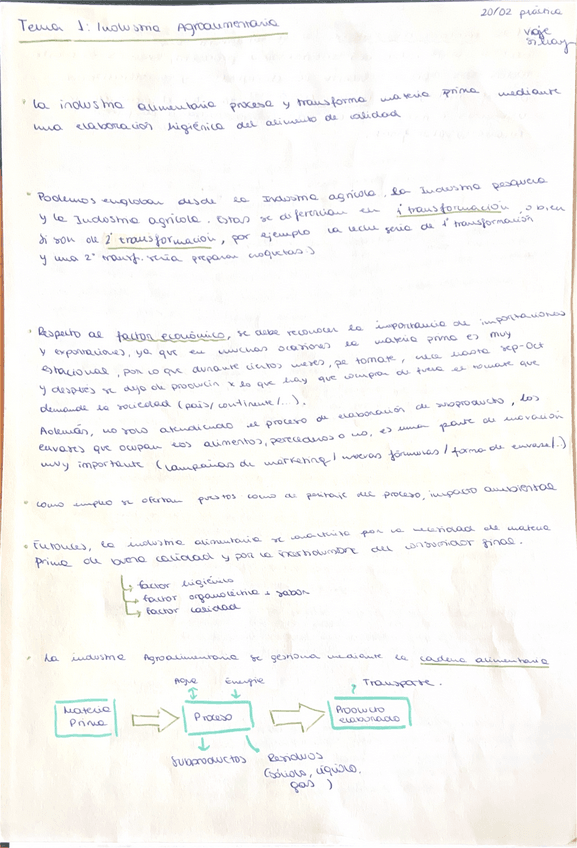 20/02 práctica
viaje
Tema 1: Industria Agroalimentaria
· La industria alimentaria procesa y transforma materia prima mediante
una elaboración higiénica del alimento de calidad
· Podemos englobar desde la Industria agrícola, la Industria pesquera
y la Industria agrícola. Estas se diferencian en 1ª transformación, o bien
si son de 2ª transformación, por ejemplo la leche sería de 1ª transformación
y una 2ª transf. sería preparar croquetas)
· Respecto al factor económico, se debe reconocer la importancia de importaciones
y exportaciones, ya que en muchas ocasiones la materia prima es muy
estacional, por lo que durante ciertos meses, pe tomate, hasta sep-Oct
y después se deja de producir x lo que hay que comprar de fuera el tomate que
demande la sociedad (país/continente/...).
Además, no solo atendiendo el proceso de elaboración de subproducto, los
envases que ocupan los alimentos, perecederos o no, es una parte de inovación
muy importante (campañas de marketing/nuevas fórmulas/forma de envase/..)
· Como empleo se ofertan puestos como de peritaje del proceso, impacto ambiental
· Entonces, la industria alimentaria se por la necesidad de materia
prima de buena calidad y por la incertidumbre del consumidor final.
factor higiénico
factor organoléctico + sabor
factor calidad
· La industria Agroalimentaria se gestiona mediante la cadena alimentaria
Agua Energía Transporte.
Materia Prima
Proceso
Producto elaborado
Subproductos Residuos
(sólido, líquido,
gas)